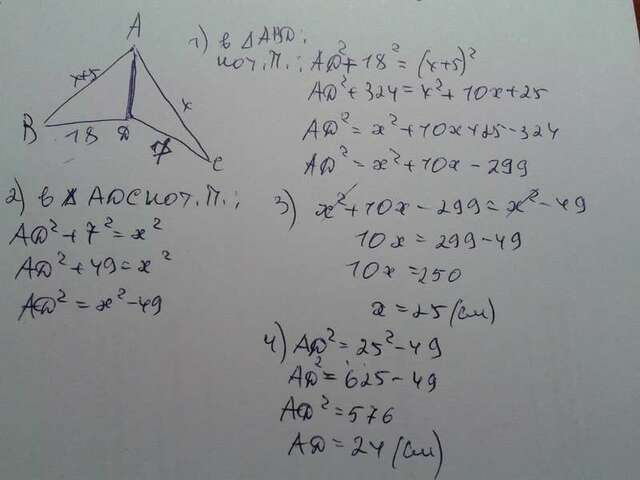 A
x+5
x
B
18
D
7
C
1) в △ABD:
по т. П.; AD²+18² = (x+5)²
AD²+324=x²+10x+25
AD²=x²+10x+25-324
AD²=x²+10x-299
2) в △ADC по т. П.;
AD²+7²=x²
AD²+49=x²
AD²=x²-49
3) x²+10x-299=x²-49
10x=299-49
10x=250
x=25 (см)
4) AD²=25²-49
AD²=625-49
AD²=576
AD=24 (см)